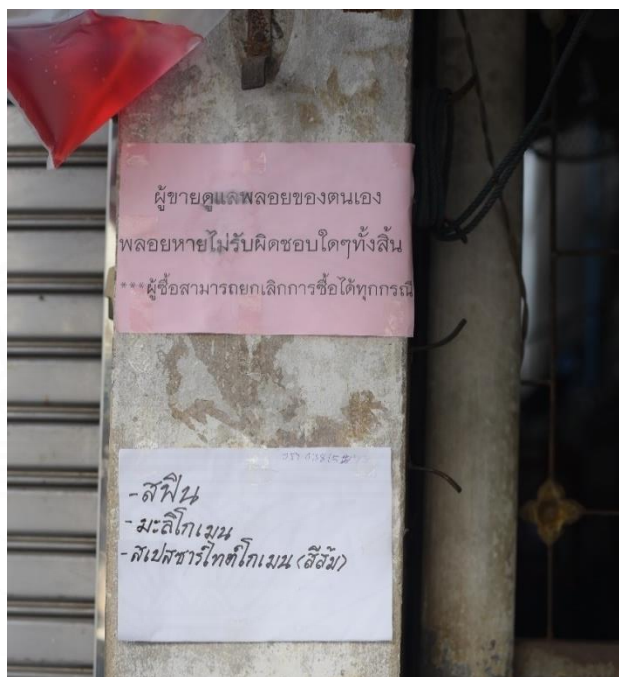 ผู้ขายดูแลพลอยของตนเอง
พลอยหายไม่รับผิดชอบใดๆทั้งสิ้น
***ผู้ซื้อสามารถยกเลิกการซื้อได้ทุกกรณี
-สฟีน
-มะลิโกเมน
-สเปสซาร์ไทต์โกเมน (สีส้ม)